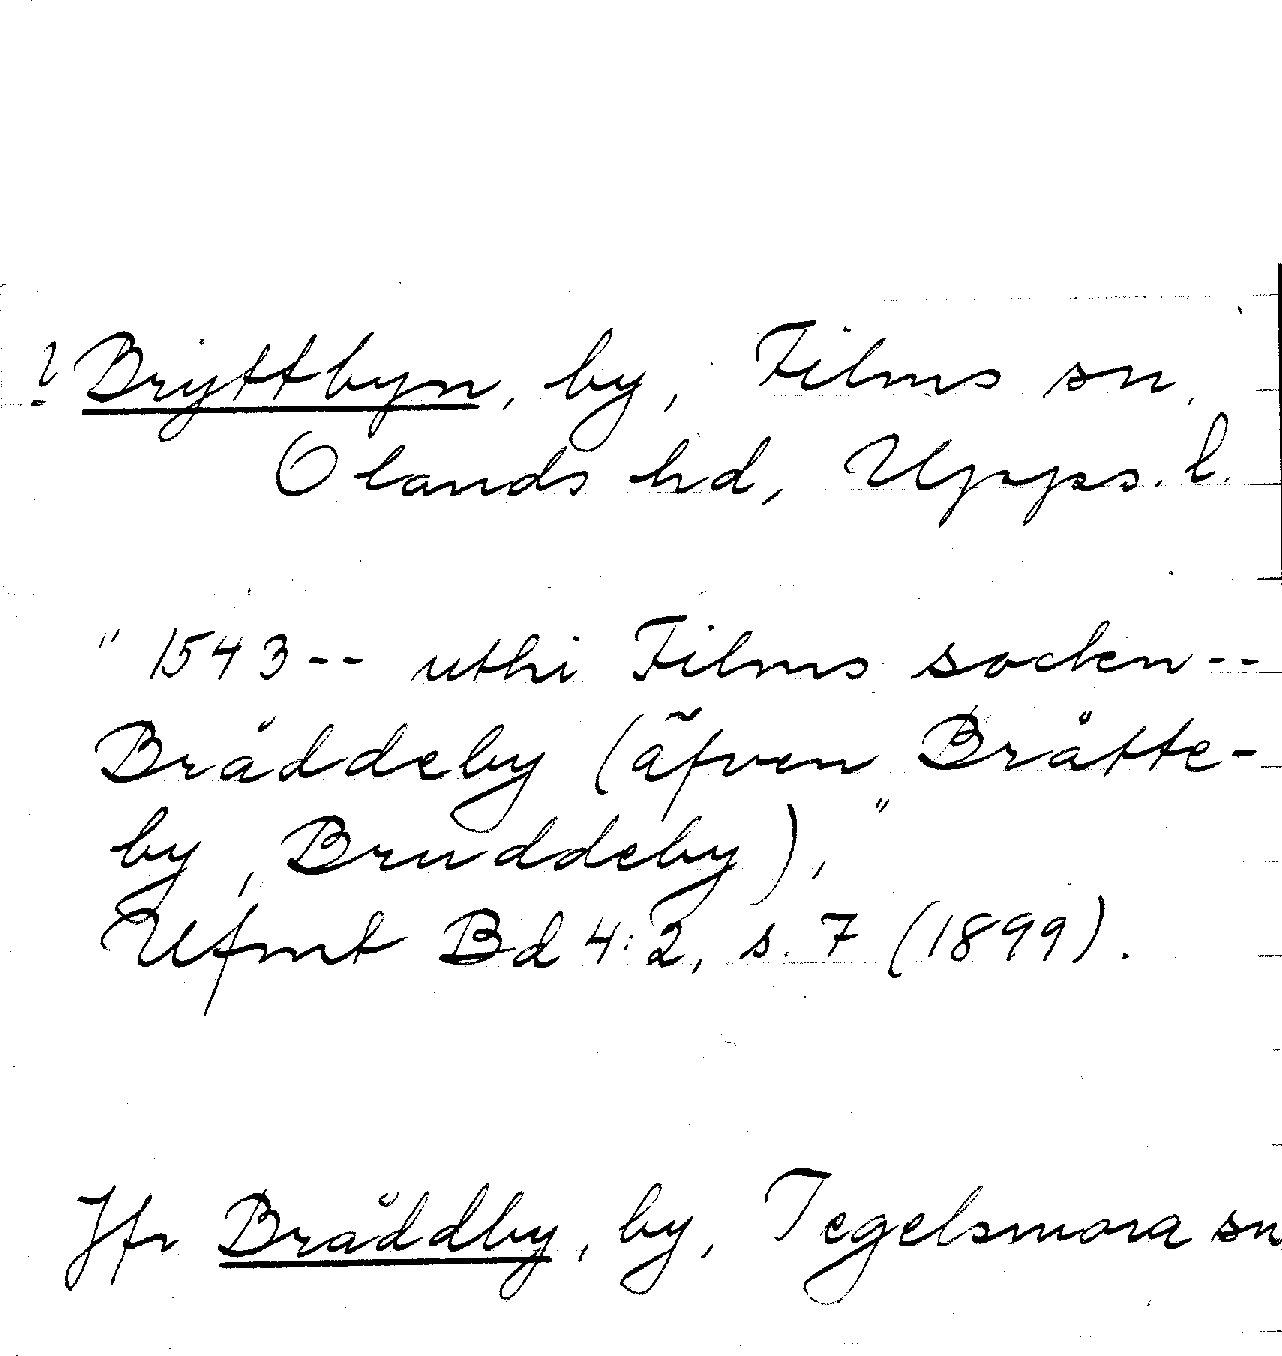 ? Bryttbyn, by, Films sn,
Olands hd, Upps. l.
"1543-- uthi Films socken--
Bråddeby (äfven Bråtte-
by, Bruddeby),"
Ufmt Bd 4:2, s. 7 (1899).
Jfr Bråddby, by, Tegelsmora sn